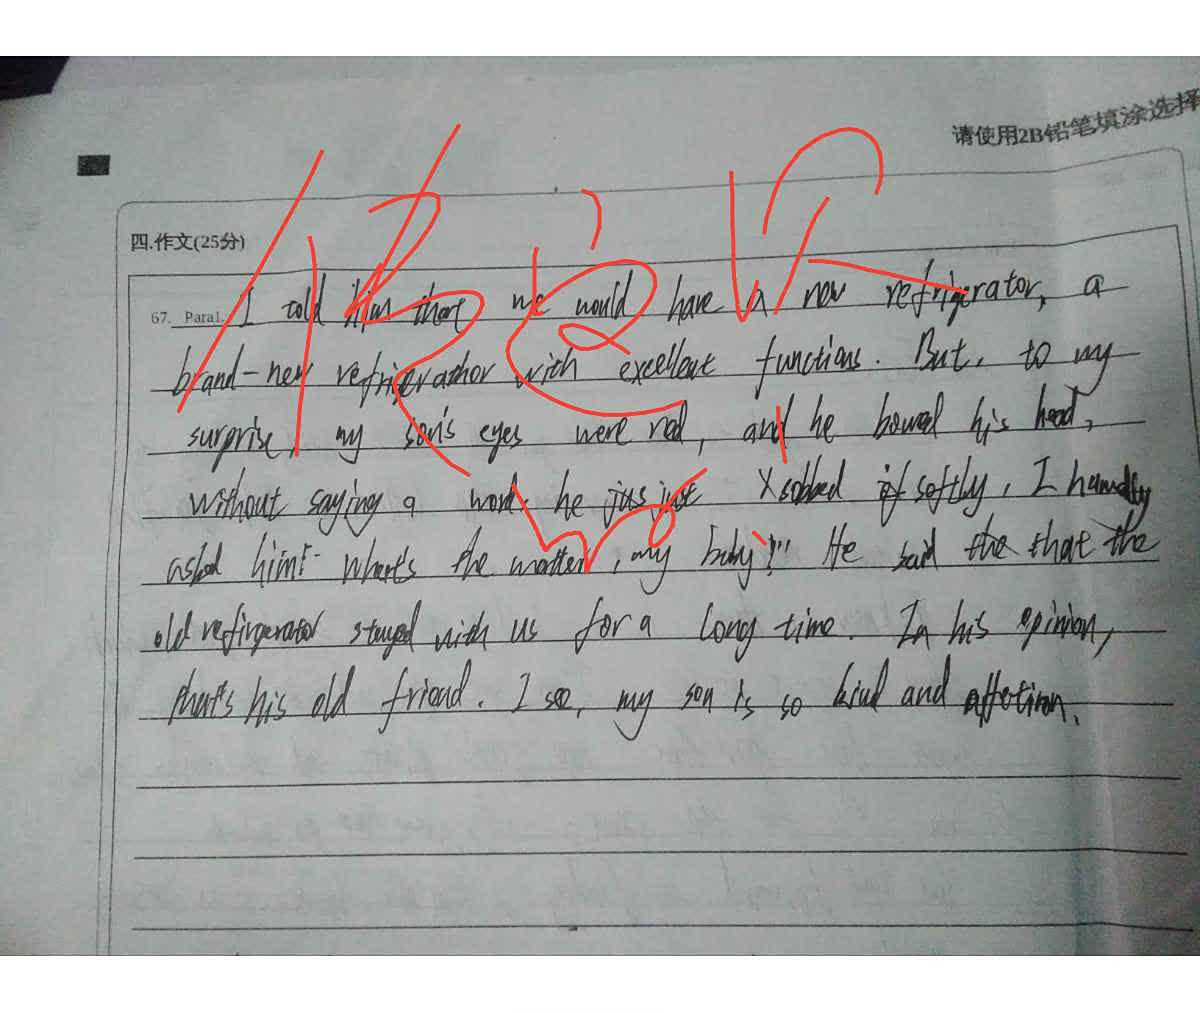 请使用2B铅笔填涂选择
四.作文(25分)
67. Para1. I told him that we would have a new refrigerator, a
brand-new refrigerathor with excellent functions. But, to my
surprise, my son's eyes were red, and he bowed his head,
without saying a word, he jus just sobbed if softly, I humdly
asked him:"what's the matter, my baby?!" He said the that the
old refirgerator stayed with us for a long time. In his opinion,
that's his old friend. I see, my son is so kind and affection.